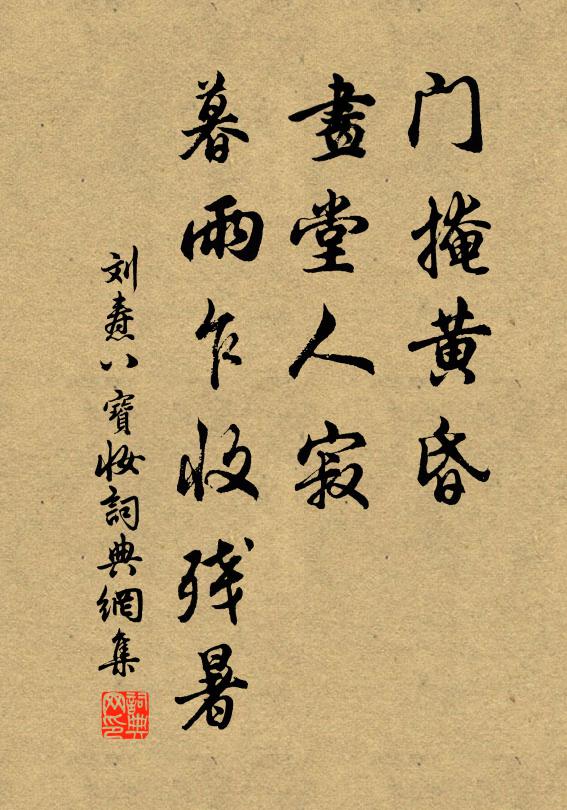 门掩黄昏
畫堂人寂
暮雨乍收残暑
刘焘八寶妆詞典網集
詞典网印